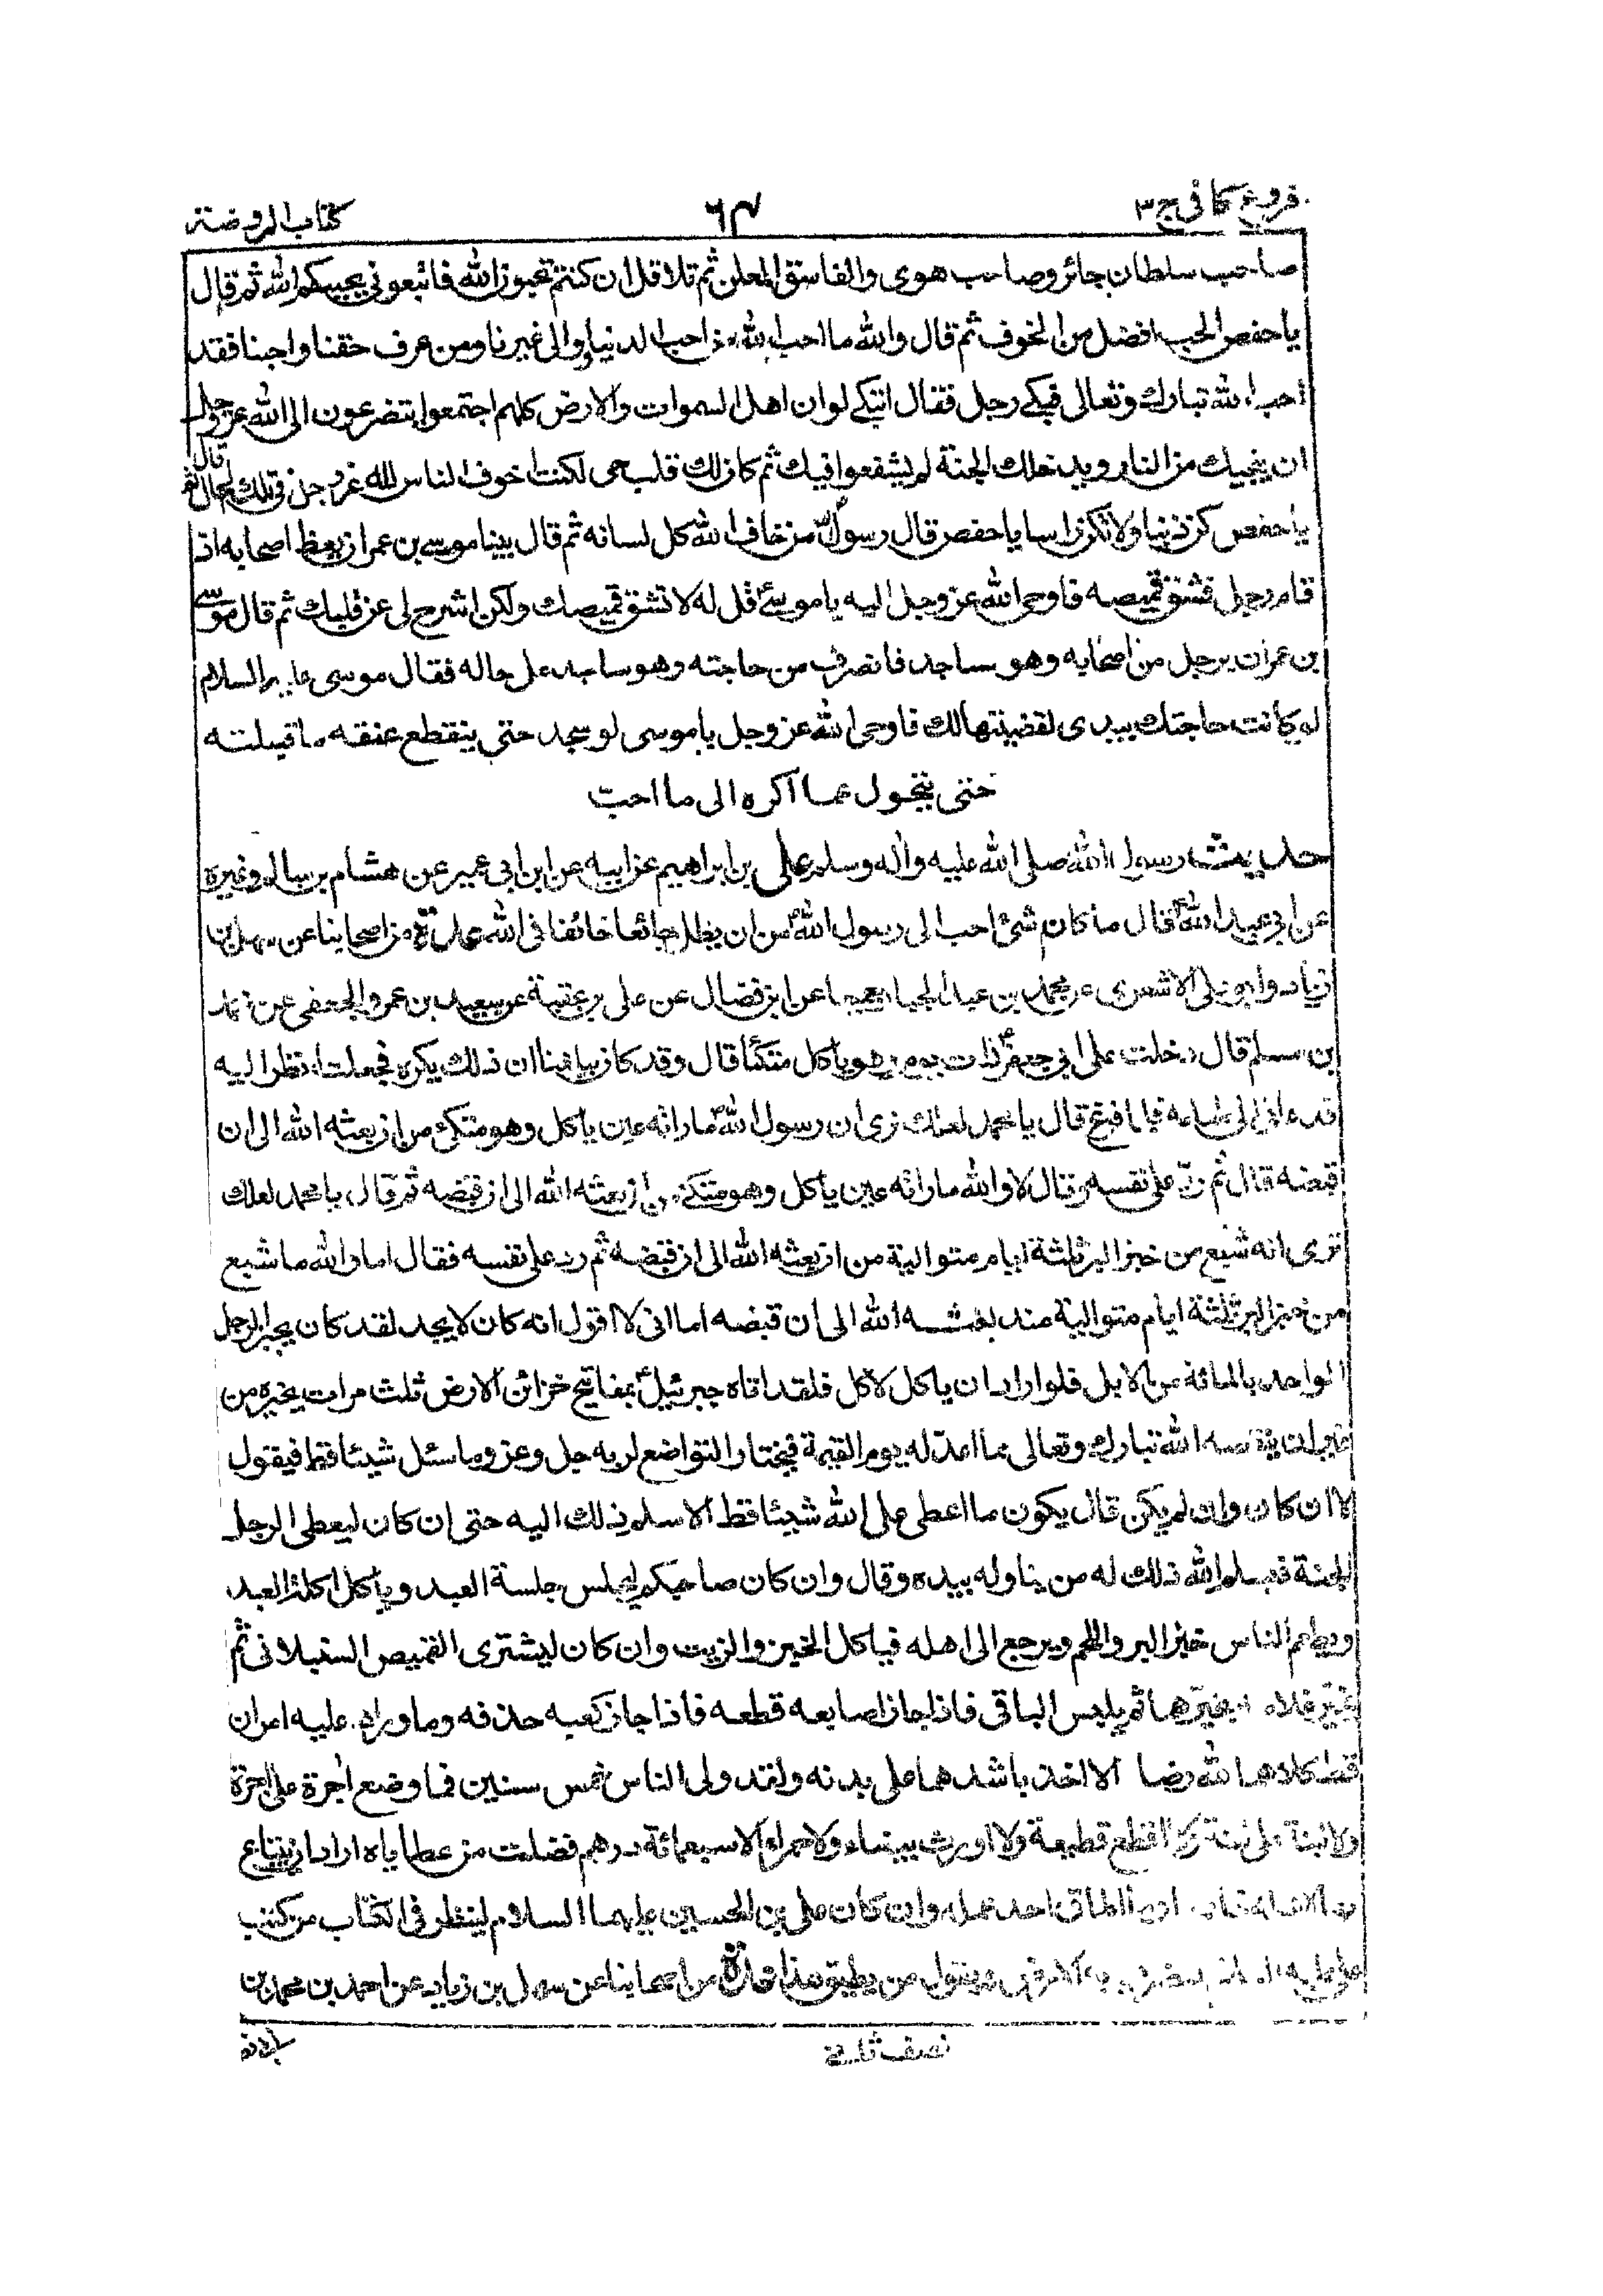 فروع كافى ج ٣
٦٢
كتاب الروضة
صاحب سلطان جائر وصاحب هوى والفاسق المعلن ثم تلا قل ان كنتم تحبون الله فاتبعونى يحببكم الله ثم قال
يا حفص الحب افضل من الخوف ثم قال والله ما احب الله من احب الدنيا ووالى غيرنا ومن عرف حقنا واحبنا فقد
احب الله تبارك وتعالى فبكى رجل فقال اتبكى لو ان اهل السموات والارض كلهم اجتمعوا يتضرعون الى الله عز وجل
ان ينجيك من النار ويدخلك الجنة لم يشفعوا فيك ثم كان لك قلب حى لكنت اخوف الناس لله عز وجل فى تلك الحال ثم قال
يا حفص كن ذنبا ولا تكن راسا يا حفص قال رسول الله من خاف الله كل لسانه ثم قال بينا موسى بن عمران يعظ اصحابه اذ
قام رجل فشق قميصه فاوحى الله عز وجل اليه يا موسى قل له لا تشق قميصك ولكن اشرح لى عن قلبك ثم قال موسى
بن عمران برجل من اصحابه وهو ساجد فانصرف من حاجته وهو ساجد على حاله فقال موسى عليه السلام
لو كانت حاجتك بيدى لقضيتها لك فاوحى الله عز وجل يا موسى لو سجد حتى ينقطع عنقه ما قبلته
حتى يتحول عما اكره الى ما احب
حديث رسول الله صلى الله عليه واله وسلم على بن ابراهيم عن ابيه عن ابن ابى عمير عن هشام بن سالم وغيره
عن ابى عبد الله قال ما كان شئ احب الى رسول الله من ان يظل جائعا خائفا فى الله عدة من اصحابنا عن سهل بن
زياد وابو على الاشعرى عن محمد بن عبد الجبار جميعا عن ابن فضال عن على بن عقبة عن سعيد بن عمرو الجعفى عن محمد
بن مسلم قال دخلت على ابى جعفر ذات يوم وهو ياكل متكئا قال وقد كان يبلغنا ان ذلك يكره فجعلت انظر اليه
فدعانى الى طعامه فلما فرغ قال يا محمد لعلك ترى ان رسول الله ما راته عين ياكل وهو متكئ من ان بعثه الله الى ان
قبضه قال ثم رد على نفسه فقال لا والله ما راته عين ياكل وهو متكئ من ان بعثه الله الى ان قبضه ثم قال يا محمد لعلك
ترى انه شبع من خبز البر ثلثة ايام متوالية من ان بعثه الله الى ان قبضه ثم رد على نفسه فقال اما والله ما شبع
من خبز البر ثلثة ايام متوالية منذ بعثه الله الى ان قبضه اما انى لا اقول انه كان لا يجد لقد كان يجيز الرجل
الواحد بالمائة من الابل فلو اراد ان ياكل لاكل فلقد اتاه جبرئيل بمفاتيح خزائن الارض ثلث مرات يخيره من
غير ان ينقصه الله تبارك وتعالى مما اعد له يوم القيمة فيختار التواضع لربه جل وعز وما سئل شيئا قط فيقول
لا ان كان وان لم يكن قال يكون ما اعطى على الله شيئا قط الا سلم ذلك اليه حتى ان كان ليعطى الرجل
الجنة فيسلم الله ذلك له من يناوله بيده وقال وان كان صاحبكم ليجلس جلسة العبد وياكل اكلة العبد
ويطعم الناس خبز البر واللحم ويرجع الى اهله فياكل الخبز والزيت وان كان ليشترى القميص السنبلانى ثم
يخير غلامه خيرهما ثم يلبس الباقى فاذا جاز اصابعه قطعه فاذا جاز كعبه حذفه وما ورد عليه امران
قط كلاهما لله رضا الا اخذ باشدهما على بدنه ولقد ولى الناس خمس سنين فما وضع اجرة على اجرة
ولا لبنة على لبنة ولا اقطع قطيعة ولا اورث بيضاء ولا حمراء الا سبعمائة درهم فضلت من عطاياه اراد ان يبتاع
بها لاهله خادما وما اطاق احد عمله وان كان على بن الحسين عليهما السلام لينظر فى الكتاب من كتب
على عليه السلام فيضرب به الارض ويقول من يطيق هذا عدة من اصحابنا عن سهل بن زياد عن احمد بن محمد بن
نصف ثلث